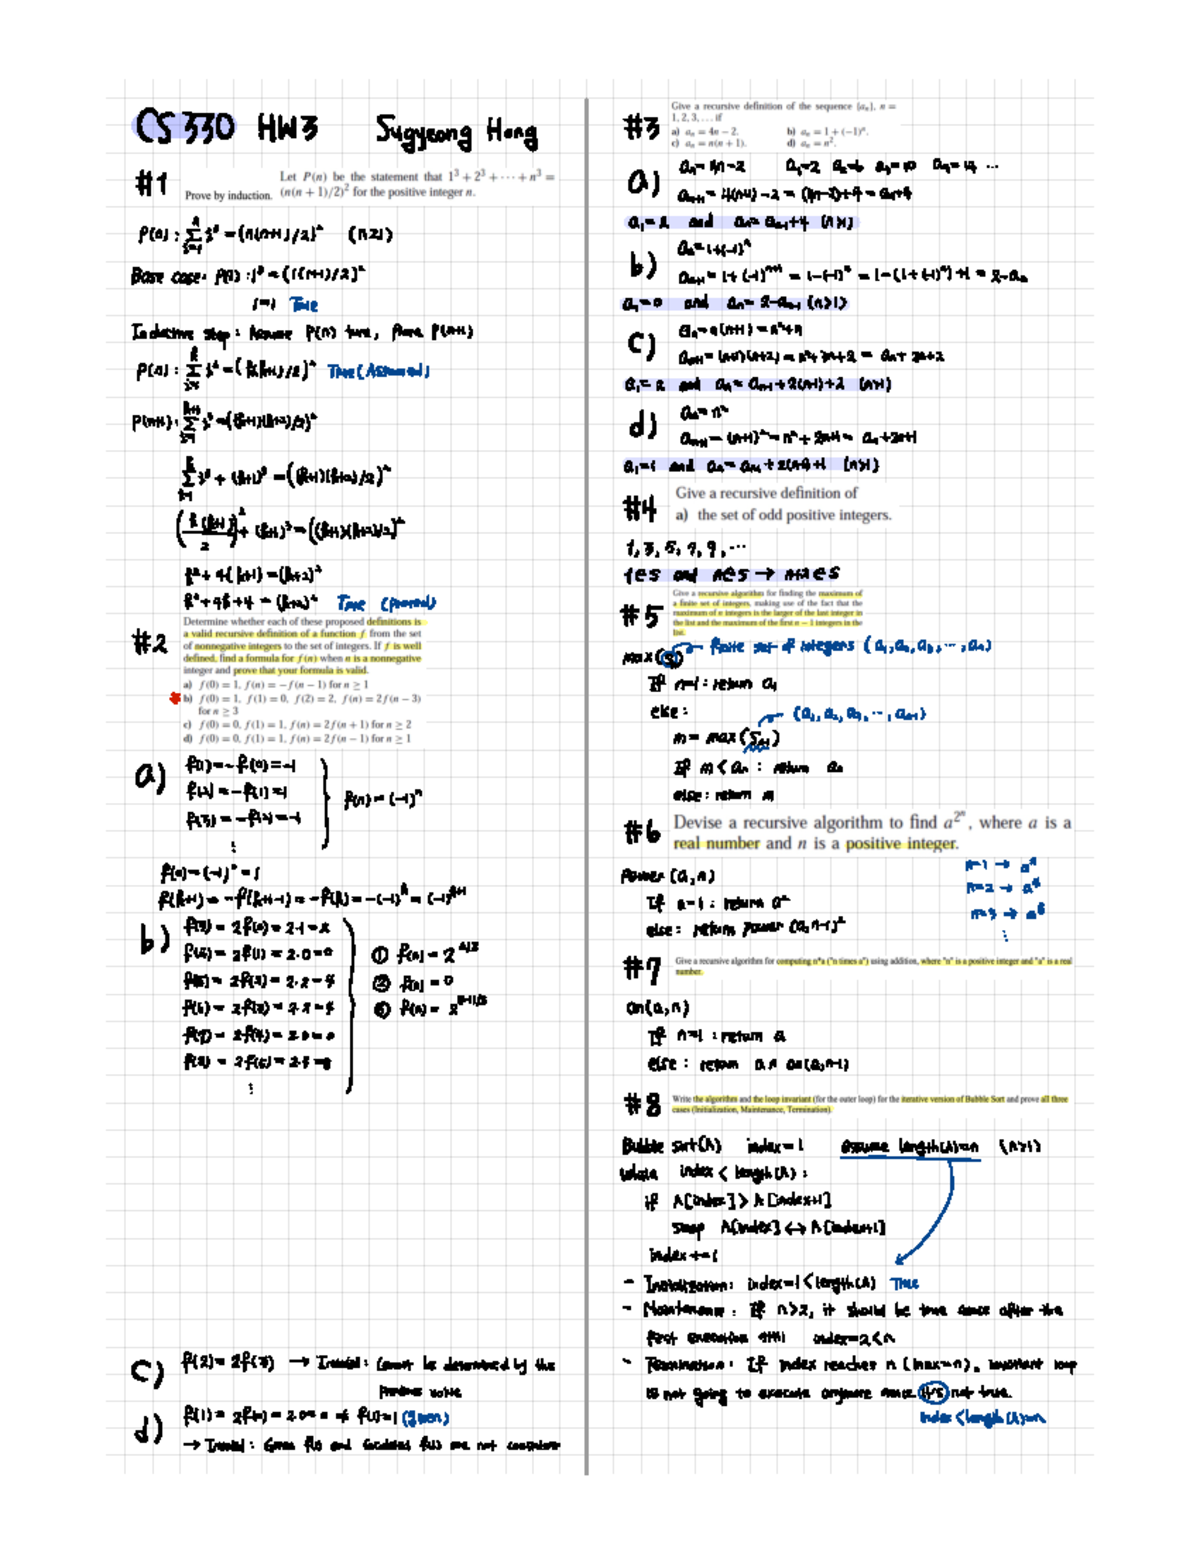 CS 330 HW3 Sugyeong Hong
#1
Let P(n) be the statement that 1³ + 2³ + ⋯ + n³ =
Prove by induction. (n(n + 1)/2)² for the positive integer n.
(n≥1)
Base case: P(1) : 1³ = (1(1+1)/2)²
1=1 True
Inductive step : Assume P(n) true, Prove P(n+1)
True (Assumed)
k²+4(k+1) = (k+2)²
k²+4k+4 = (k+2)² True (proved)
#2
Determine whether each of these proposed definitions is
a valid recursive definition of a function f from the set
of nonnegative integers to the set of integers. If f is well
defined, find a formula for f(n) when n is a nonnegative
integer and prove that your formula is valid.
a) f(0) = 1, f(n) = −f(n − 1) for n ≥ 1
b) f(0) = 1, f(1) = 0, f(2) = 2, f(n) = 2f(n − 3)
for n ≥ 3
c) f(0) = 0, f(1) = 1, f(n) = 2f(n + 1) for n ≥ 2
d) f(0) = 0, f(1) = 1, f(n) = 2f(n − 1) for n ≥ 1
a) f(1) = -f(0) = -1
f(2) = -f(1) = 1
f(3) = -f(2) = -1
f(n) = (-1)ⁿ
f(0) = (-1)⁰ = 1
f(k+1) = -f(k+1-1) = -f(k) = -(-1)ᵏ = (-1)ᵏ⁺¹
b) f(3) = 2f(0) = 2·1 = 2
f(4) = 2f(1) = 2·0 = 0
① f(n) = 2ⁿᐟ³
② f(n) = 0
c) f(2) = 2f(3) → Invalid : Cannot be determined by the
previous value
d) (given)
→ Invalid : Given f(1) and calculated f(1) are not
#3
Give a recursive definition of the sequence {aₙ}, n =
1, 2, 3, … if
a) aₙ = 4n − 2. b) aₙ = 1 + (−1)ⁿ.
c) aₙ = n(n + 1). d) aₙ = n².
a) aₙ = 4n-2 a₁=2 a₂=6 a₃=10 a₄=14 ...
aₙ₊₁ = 4(n+1)-2 = (4n-2)+4 = aₙ+4
a₁=2 and aₙ = aₙ₋₁+4 (n>1)
b) aₙ = 1+(-1)ⁿ
aₙ₊₁ = 1+(-1)ⁿ⁺¹ = 1-(-1)ⁿ = 1-(1+(-1)ⁿ)+1 = 2-aₙ
a₁=0 and aₙ = 2-aₙ₋₁ (n>1)
c) aₙ = n(n+1) = n²+n
aₙ₊₁ = (n+1)(n+2) = n²+3n+2 = aₙ+2n+2
a₁=2 and aₙ = aₙ₋₁+2(n-1)+2 (n>1)
d) aₙ = n²
aₙ₊₁ = (n+1)² = n²+2n+1 = aₙ+2n+1
a₁=1 and aₙ = aₙ₋₁+2(n-1)+1 (n>1)
#4
Give a recursive definition of
a) the set of odd positive integers.
1, 3, 5, 7, 9, ...
1∈S and n∈S → n+2∈S
#5
Give a recursive algorithm for finding the maximum of
a finite set of integers, making use of the fact that the
maximum of n integers is the larger of the last integer in
the list and the maximum of the first n − 1 integers in the
list.
finite set of integers (a₁, a₂, a₃, ..., aₙ)
If n=1 : return a₁
else :
(a₁, a₂, a₃, ..., aₙ₋₁)
m = max(Sₙ₋₁)
If m < aₙ : return aₙ
else : return m
#6
Devise a recursive algorithm to find a^2ⁿ, where a is a
real number and n is a positive integer.
n=1 → a²
n=2 → a⁴
n=3 → a⁸
Power (a, n)
If n=1 : return a²
else : return power (a, n-1)²
#7
Give a recursive algorithm for computing n*a ("n times a") using addition, where "n" is a positive integer and "a" is a real
number.
an(a, n)
If n=1 : return a
else : return
#8
Write the algorithm and the loop invariant (for the outer loop) for the iterative version of Bubble Sort and prove all three
cases (Initialization, Maintenance, Termination).
Bubble sort(A) index=1 assume length(A)=n (n>1)
while index < length(A) :
if A[index] > A[index+1]
swap A[index] ↔ A[index+1]
index += 1
- Initialization : index=1 < length(A) True
- Maintenance : If n>2, it should be true since after the
first execution still index=2<n
- Termination : If index reaches n (index=n), loop
is not going to execute anymore since this not true.
index < length(A)=n